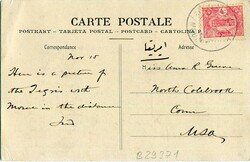 CARTE POSTALE
POSTKARY - TARJETA POSTAL - POSTCARD - CARTOLINA P
Correspondance
Adresse
Nov 15
Here is a picture of
the Tigris with
Mosue in the distance
امریقا
Miss Anna R. Greene
North Colebrook
Conn
USA
B29371